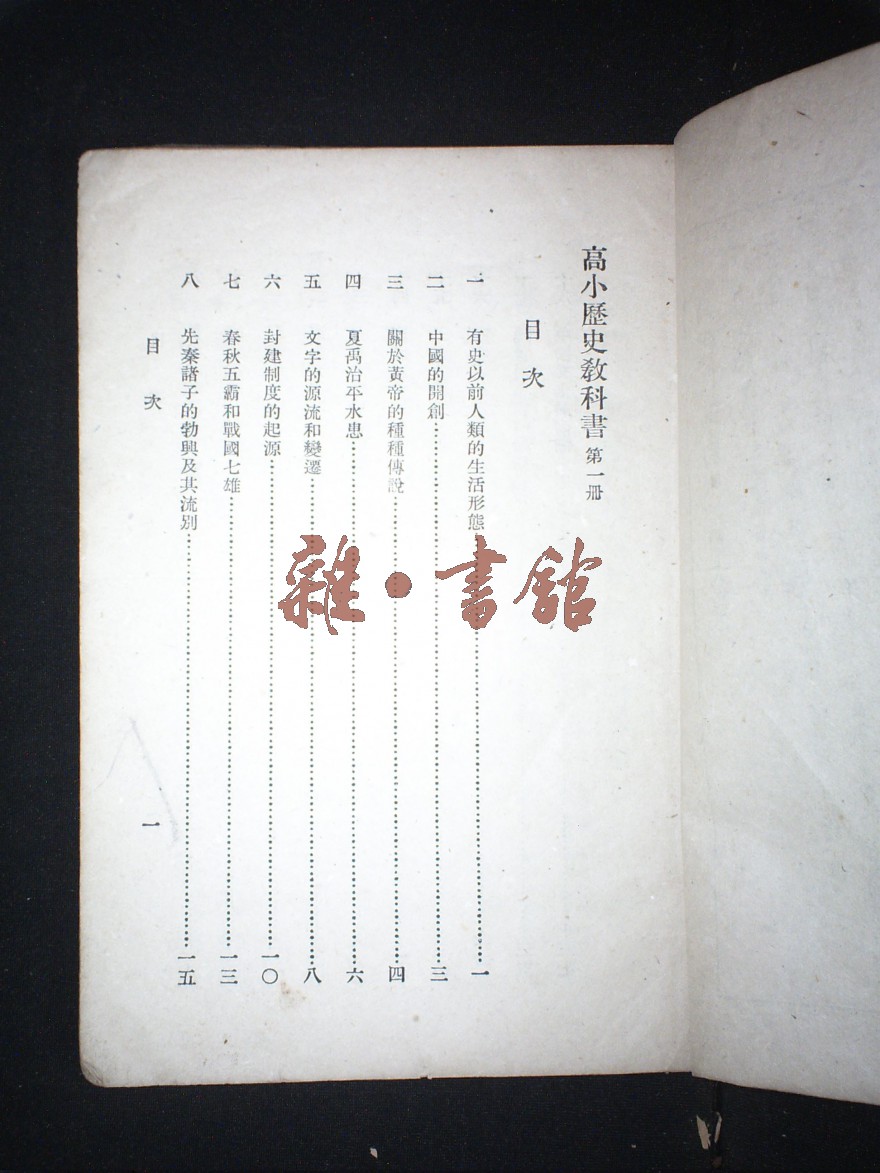 高小歷史教科書 第一册
目次
一 有史以前人類的生活形態……一
二 中國的開創……三
三 關於黃帝的種種傳說……四
四 夏禹治平水患……六
五 文字的源流和變遷……八
六 封建制度的起源……一〇
七 春秋五霸和戰國七雄……一三
八 先秦諸子的勃興及其流別……一五
目次
一
雜·書館